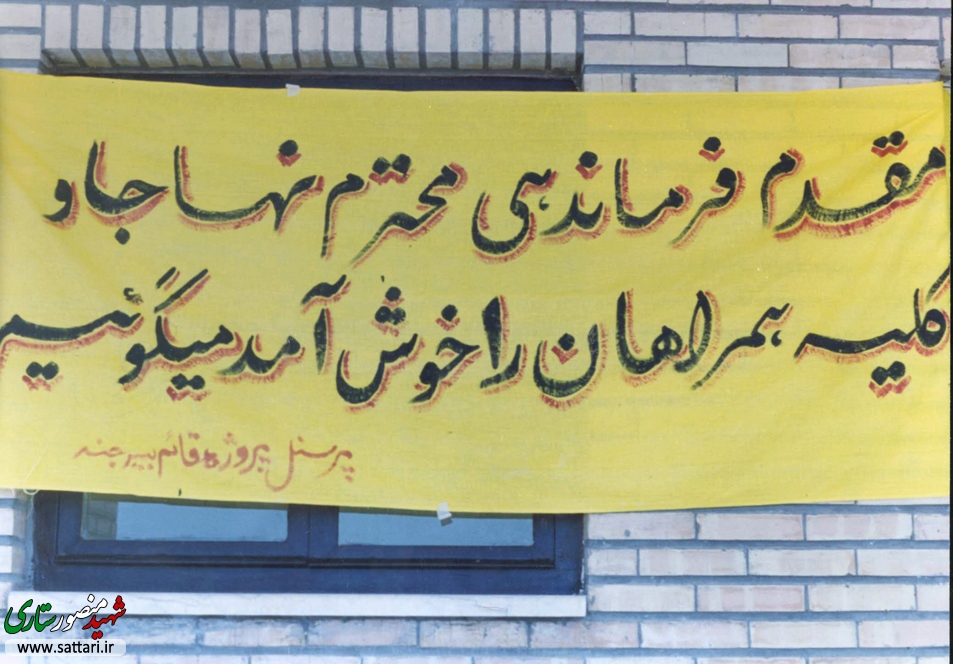 مقدم فرماندهی محترم نهاجا و
کلیه همراهان را خوش آمد میگوئیم
پرسنل پروژه قائم بیرجند
شهید منصور ستاری
www.sattari.ir